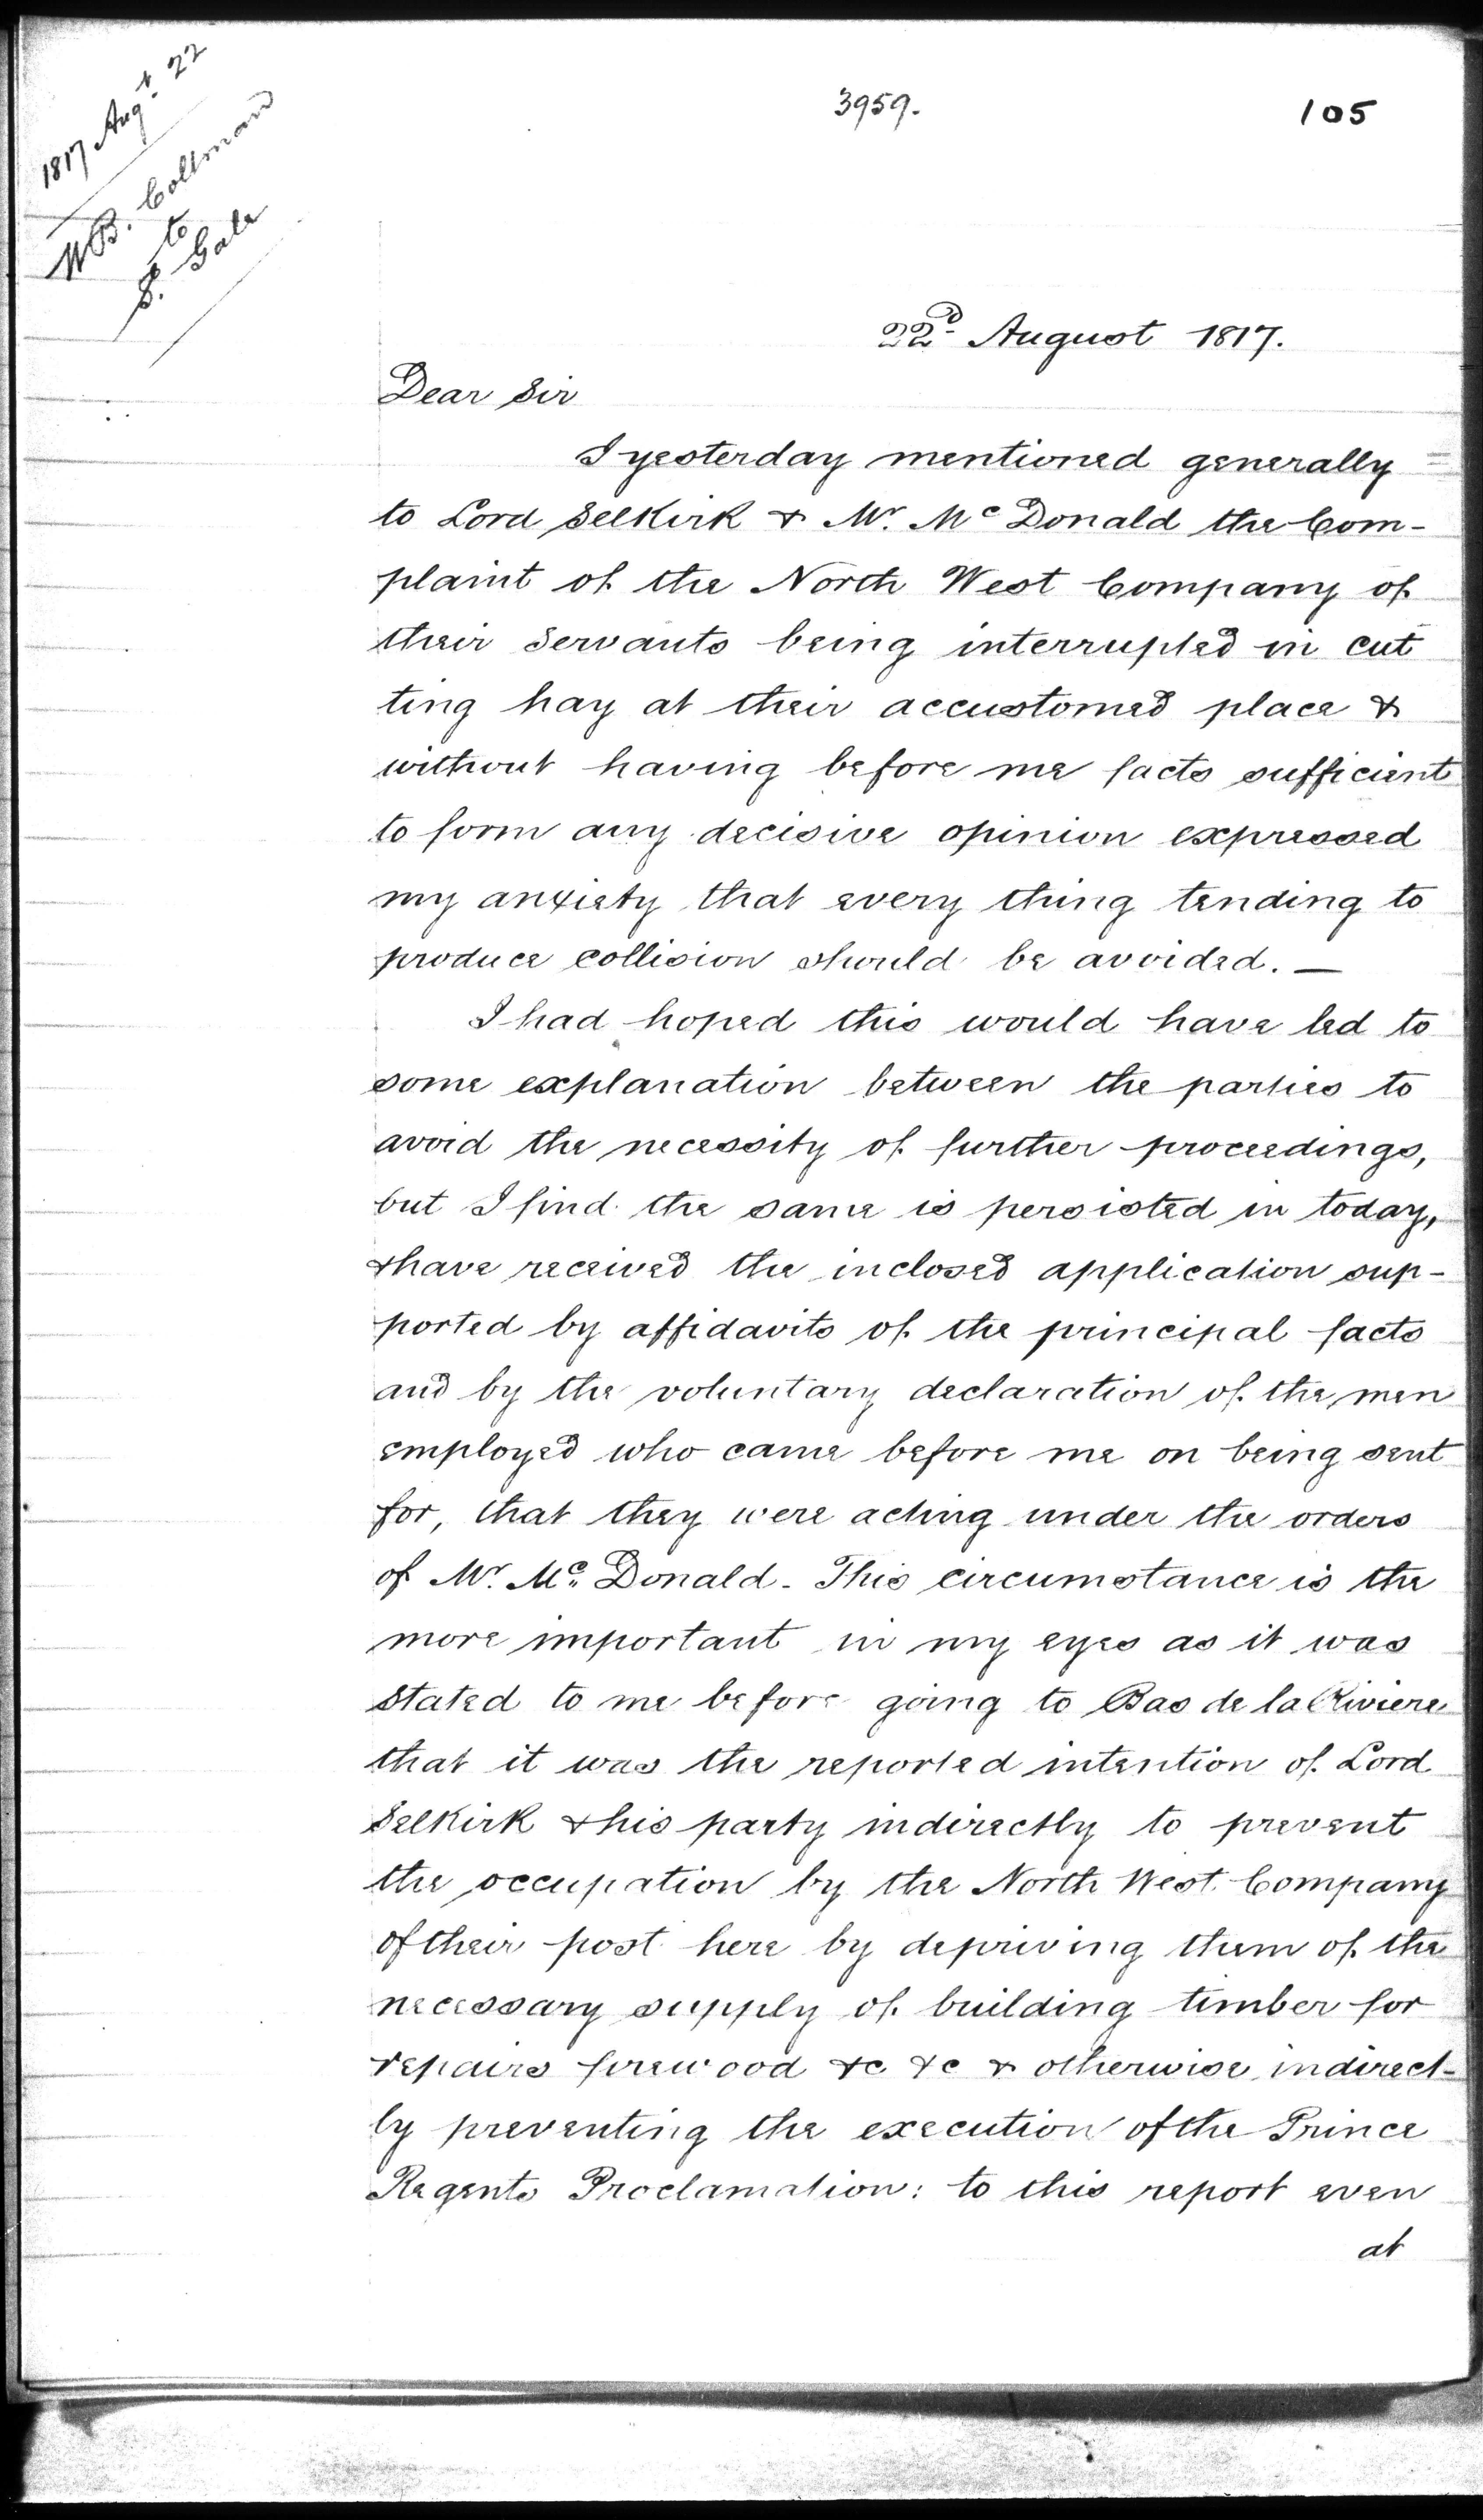 1817 Augt. 22
W B. Coltman
to
S. Gale
3959.
105
22d August 1817.
Dear Sir
I yesterday mentioned generally
to Lord Selkirk & Mr. Mc Donald the Com-
plaint of the North West Company of
their Servants being interrupted in cut
ting hay at their accustomed place &
without having before me facts sufficient
to form any decisive opinion expressed
my anxiety that every thing tending to
produce collision should be avoided. —
I had hoped this would have led to
some explanation between the parties to
avoid the necessity of further proceedings,
but I find the same is persisted in today,
& have received the inclosed application sup-
ported by affidavits of the principal facts
and by the voluntary declaration of the men
employed who came before me on being sent
for, that they were acting under the orders
of Mr. Mc. Donald - This circumstance is the
more important in my eyes as it was
stated to me before going to Bas de la Riviere
that it was the reported intention of Lord
Selkirk & his party indirectly to prevent
the occupation by the North West Company
of their post here by depriving them of the
necessary supply of building timber for
repairs firewood &c &c & otherwise indirect-
ly preventing the execution of the Prince
Regents Proclamation: to this report even
at